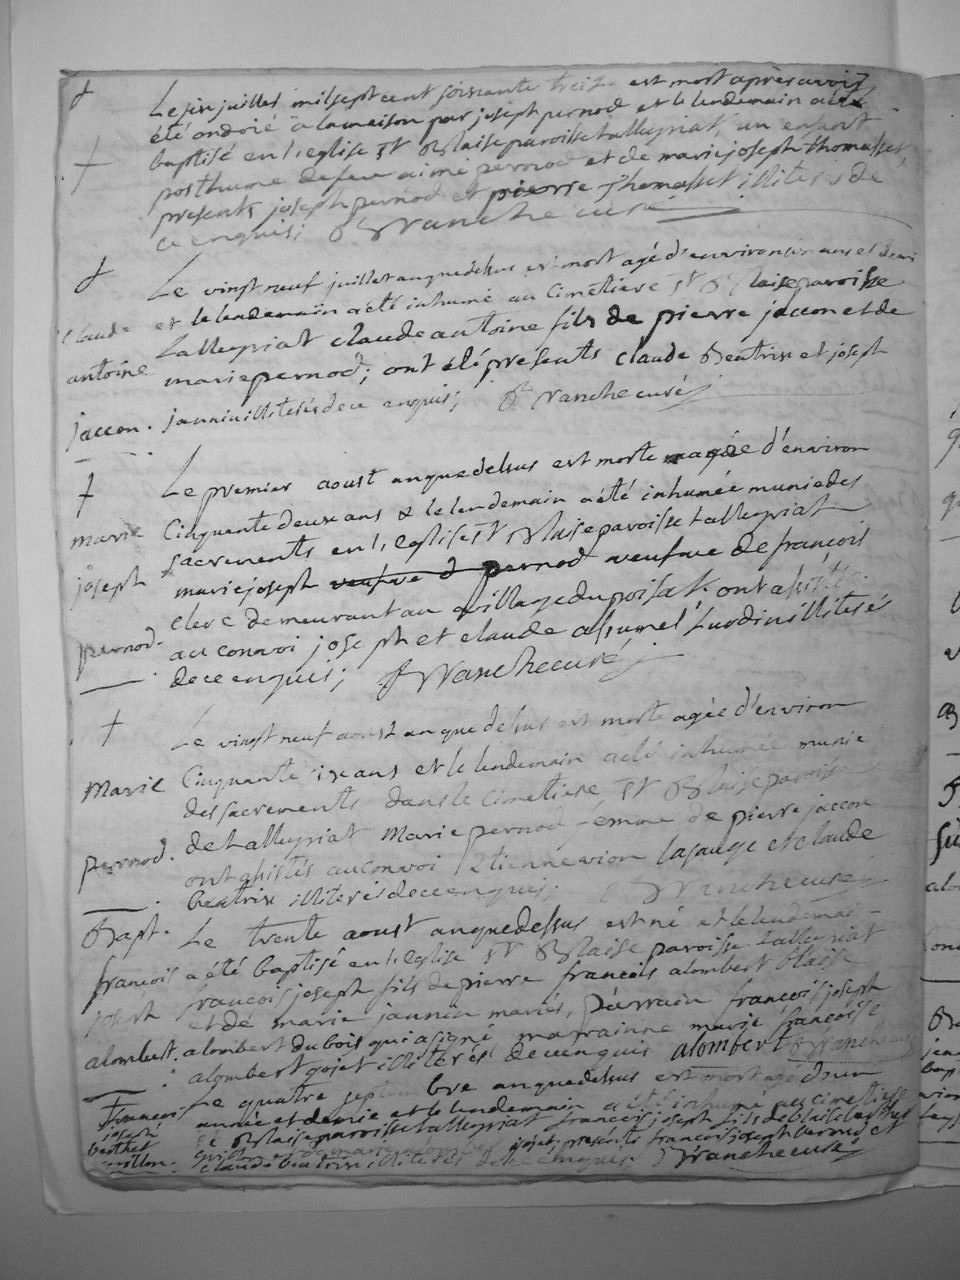 Le six juillet mil sept cent soixante treize est mort après avoir
été ondoié a la maison par joseph pernod et le lendemain a été
baptisé en l'eglise St Blaise paroisse tallegriat, un enfant
posthume de feu aimé pernod et de marie joseph thomasset,
presents joseph pernod et pierre thomasset illiterés de
ce enquis; Branche curé
Le vingt neuf juillet an que dessus est mort agé d'environ six ans et demi
Claude et le lendemain a été inhumé au cimetiere St Blaise paroisse
tallegriat claude antoine fils de pierre jaccon et de
antoine marie pernod; ont été presents claude Beatrix et joseph
jaccon. jannin illiterés de ce enquis; Branche curé
Le premier aoust an que dessus est morte agée d'environ
marie Cinquante deux ans & le lendemain a été inhumée munie des
sacrements en l'eglise St Blaise paroisse tallegriat
joseph marie joseph veufve d pernod veufve de francois
clerc demeurant au village du poisat. ont assisté
pernod. au convoi joseph et claude alsumel Lurdin illiterés
de ce enquis; Branche curé
Le vingt neuf aoust an que dessus est morte agée d'environ
Marie Cinquante six ans et le lendemain a été inhumée munie
des sacrements dans le cimetiere St Blaise paroisse
pernod. de tallegriat Marie pernod femme de pierre jaccon
ont assistés au convoi Etienne vion lasauge et claude
beatrix illiterés de ce enquis; Branche curé
Bapt. Le trente aoust an que dessus est né et le lendemain
francois a été baptisé en l'eglise St Blaise paroisse tallegriat
joseph francois joseph fils de pierre francois alombert blaise
et de marie jannin mariés, parrain francois joseph
alombert. alombert dubois qui a signé marrainne marie francoise
alombert gojet illiterés de ce enquis alombert Branche curé
Le quatre septembre an que dessus est mort agé d'un
francois année et demie et le lendemain a été inhumé au cimetiere
joseph St Blaise paroisse tallegriat francois joseph fils de blaise
gojet, presents francois joseph pernod et
claude beatrix illiterés de ce enquis Branche curé